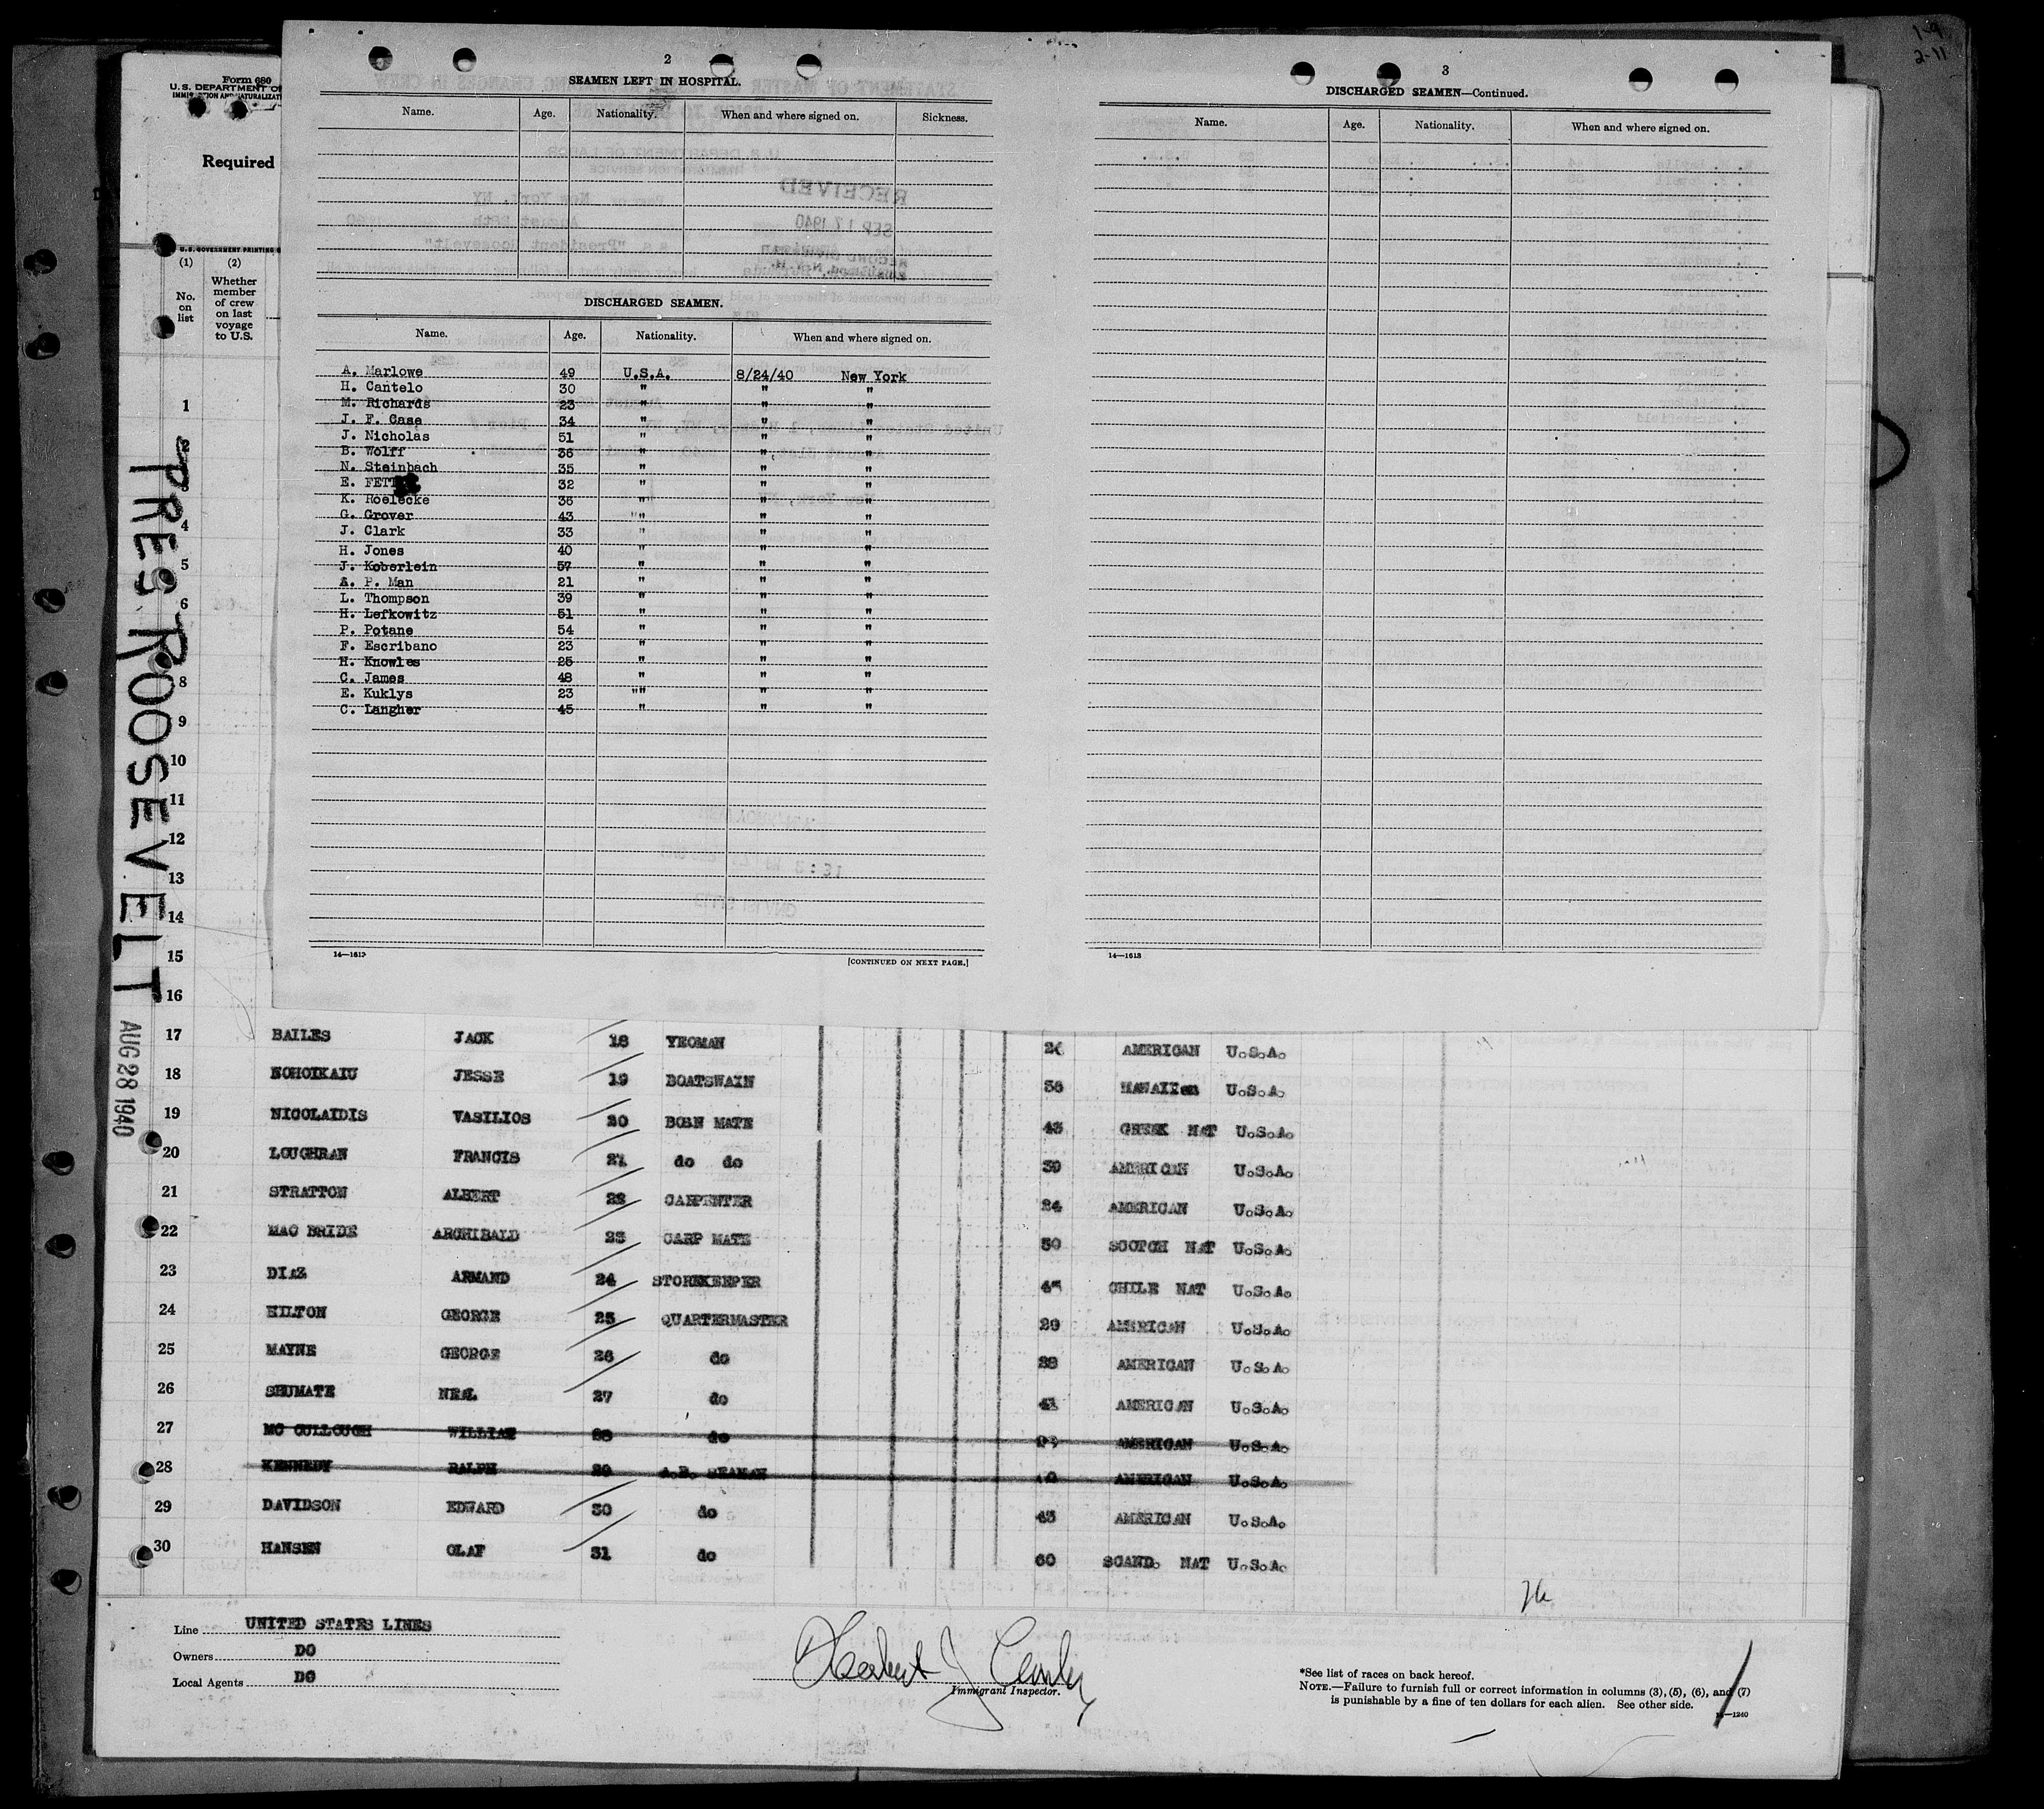 1-9
2-11
Form 680
U.S. DEPARTMENT OF
Required
U.S. GOVERNMENT PRINTING
(1) (2)
No. on list
Whether member of crew on last voyage to U.S.
PRES ROOSEVELT
AUG 28 1940
2
SEAMEN LEFT IN HOSPITAL.
Name. Age. Nationality. When and where signed on. Sickness.
DISCHARGED SEAMEN.
Name. Age. Nationality. When and where signed on.
A. Marlowe 49 U.S.A. 8/24/40 New York
H. Cantelo 30 " " "
M. Richards 23 " " "
J. F. Case 34 " " "
J. Nicholas 51 " " "
B. Wolff 36 " " "
N. Steinbach 35 " " "
E. 32 " " "
K. Roelecke 36 " " "
G. Grover 43 "" " "
J. Clark 33 " " "
H. Jones 40 " " "
J. Koberlein 57 " " "
A. P. Man 21 " " "
L. Thompson 39 " " "
H. Lefkowitz 51 " " "
P. Potane 54 " " "
F. Escribano 23 " " "
H. Knowles 25 " " "
C. James 48 " " "
E. Kuklys 23 "" " "
C. Langher 45 " " "
[CONTINUED ON NEXT PAGE.]
3
DISCHARGED SEAMEN—Continued.
Name. Age. Nationality. When and where signed on.
14—1613
1
2
4
5
6
8
9
10
11
12
13
14
15
16
17 BAILES JACK 18 YEOMAN AMERICAN U.S.A.
18 NOHOIKAIU JESSE 19 BOATSWAIN 36 HAWAIIan U.S.A.
19 NICOLAIDIS VASILIOS 20 BOSN MATE 43 GREEK NAT U.S.A.
20 LOUGHRAN FRANCIS 21 do do 39 AMERICAN U.S.A.
21 STRATTON ALBERT 22 CARPENTER 24 AMERICAN U.S.A.
22 MAC BRIDE ARCHIBALD 23 CARP MATE 50 SCOTCH NAT U.S.A.
23 DIAZ ARMAND 24 STOREKEEPER CHILE NAT U.S.A.
24 HILTON GEORGE 25 QUARTERMASTER 29 AMERICAN U.S.A.
25 MAYNE GEORGE 26 do 28 AMERICAN U.S.A.
26 SHUMATE NEAL 27 do 41 AMERICAN U.S.A.
27 MC CULLOUGH WILLIAM 28 do AMERICAN U.S.A.
28 KENNEDY RALPH 29 A.B. SEAMAN AMERICAN U.S.A.
29 DAVIDSON EDWARD 30 do 43 AMERICAN U.S.A.
30 HANSEN OLAF 31 do 60 SCAND. NAT U.S.A.
Line UNITED STATES LINES
Owners DO
Local Agents DO
Immigrant Inspector.
*See list of races on back hereof.
NOTE.—Failure to furnish full or correct information in columns (3), (5), (6), and (7)
is punishable by a fine of ten dollars for each alien. See other side.